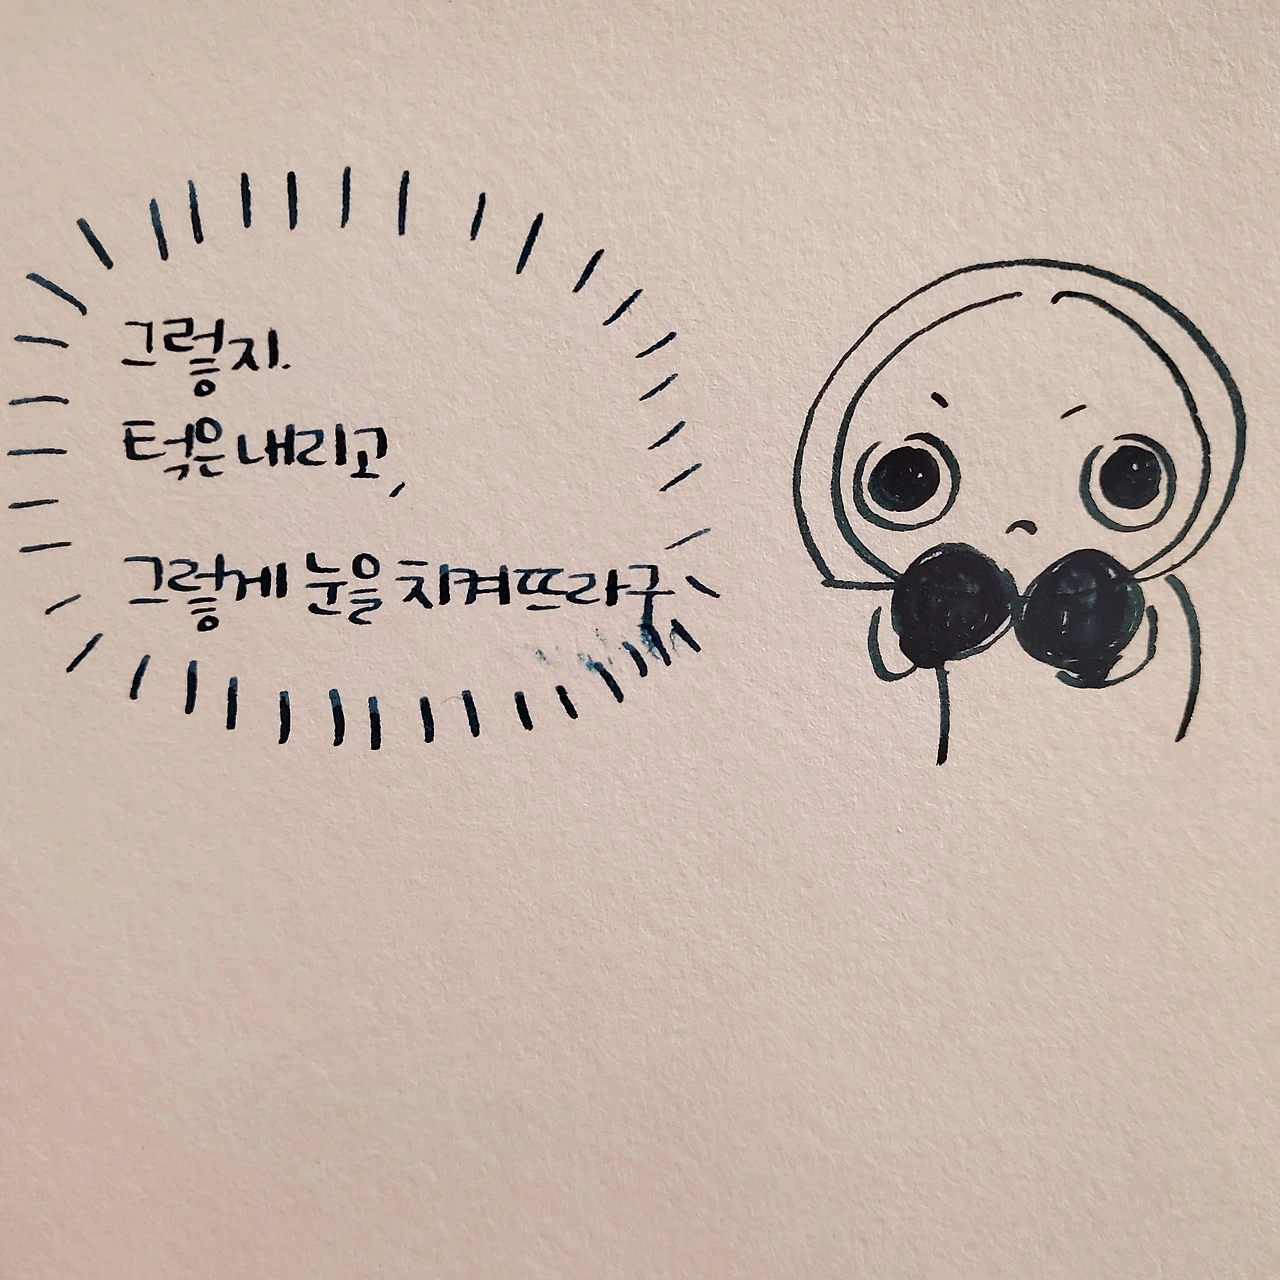 그렇지.
턱은 내리고,
그렇게 눈을 치켜뜨라구